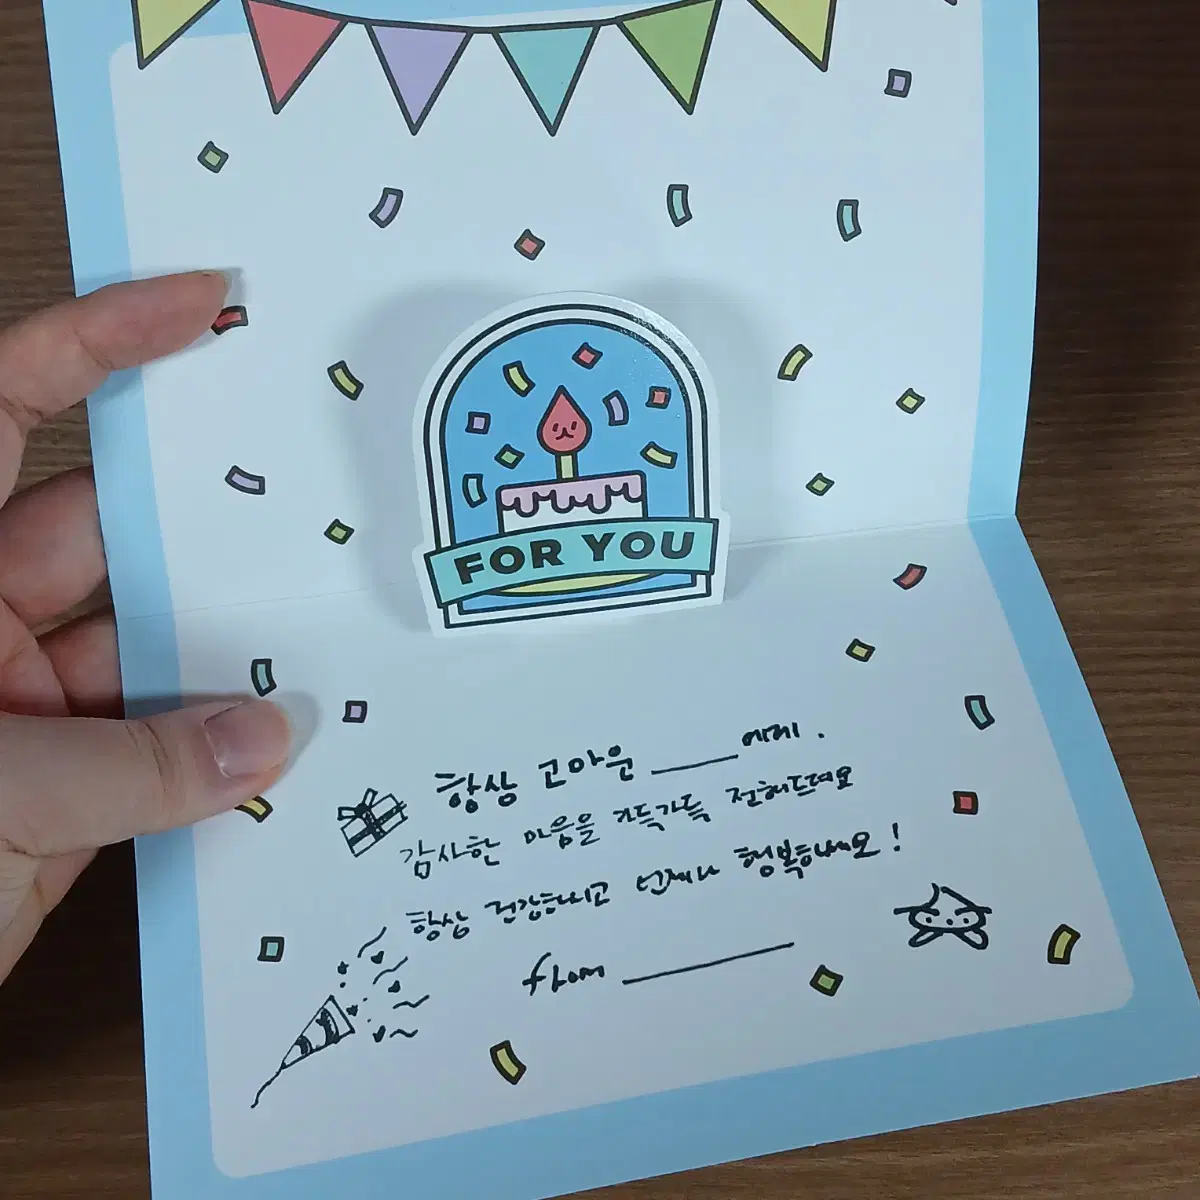 FOR YOU
항상 고마운 ______에게.
감사한 마음을 가득가득 전해드려요
항상 건강하시고 언제나 행복하세요!
from ______